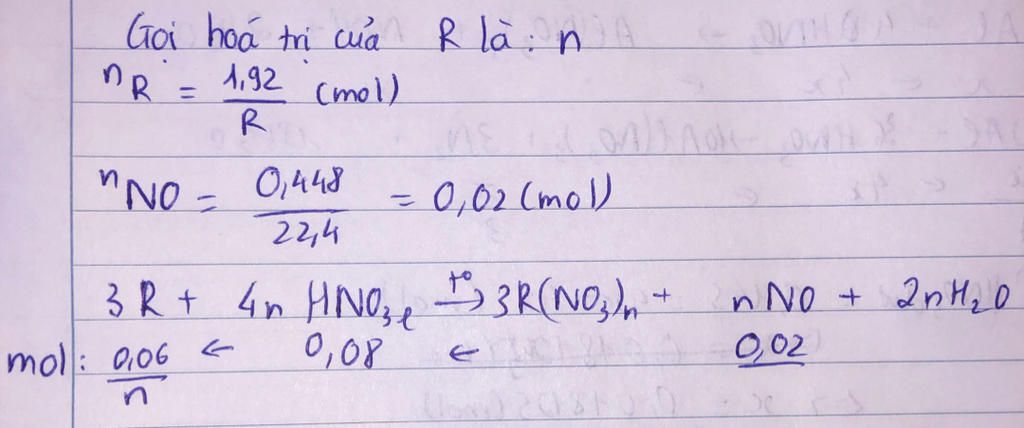 Gọi hoá trị của R là: n
nR = 1,92/R (mol)
nNO = 0,448/22,4 = 0,02 (mol)
3R + 4n HNO3l →(t°) 3R(NO3)n + nNO + 2nH2O
mol: 0,06/n ← 0,08 ← 0,02